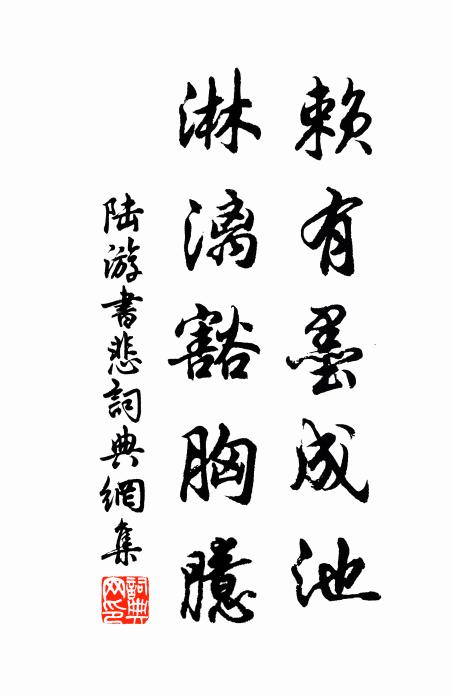 赖有墨成池
淋漓豁胸臆
陆游书悲詞典網集
詞典网印